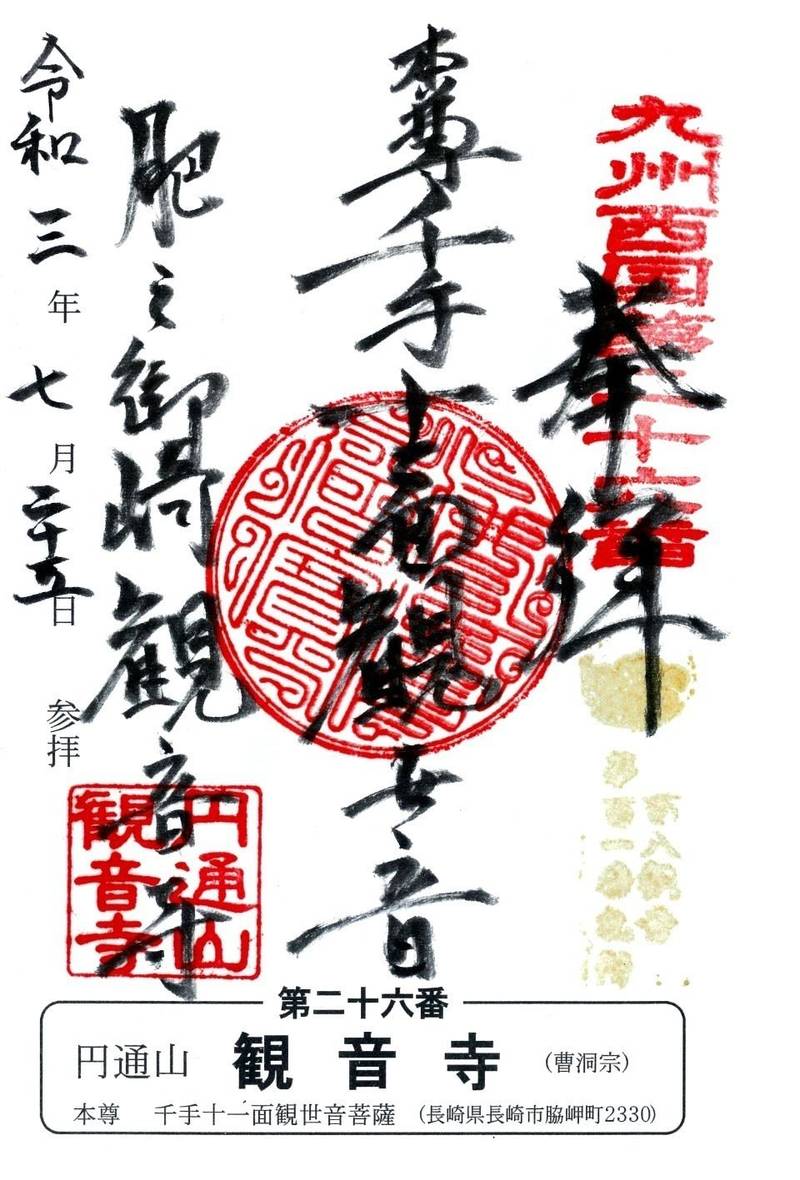 九州西国第二十六番
奉拝
本尊千手十一面観世音
肥之御崎観音寺
令和三年七月二十五日参拝
円通山
観音寺
第二十六番
円通山 観音寺 (曹洞宗)
本尊 千手十一面観世音菩薩 (長崎県長崎市脇岬町2330)